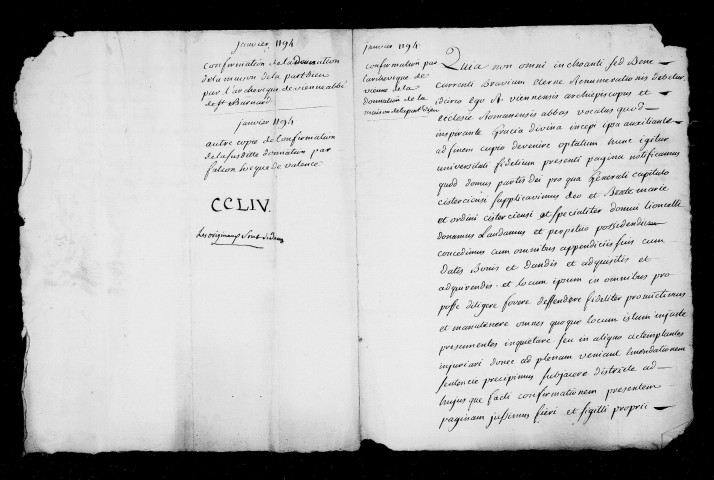 janvier 1194
confirmation de la donnation
de la maison de la part dieu
par l'archeveque de vienne abbé
de St Barnard
janvier 1194
autre copie de confirmation
de la susditte donnation par
falcon eveque de valence
CCLIV.
Les originaux sont
janvier 1194.
confirmation par
l'archeveque de
vienne de la
donnation de la
maison de la part dieu
Quia non omni inchoanti sed Bene
currenti Bravium eterne Renumerationis debetur
idcirco ego A viennensis archiepiscopus et
ecclesie Romanensis abbas vocatus quod
inspirante gracia divina incepi ipsa auxiliante
ad finem cupio devenire optatum hunc igitur
universitati fidelium presenti pagina notificamus
quod domus partis dei pro qua generali capitulo
cisterciensi supplicavimus deo et Beate marie
et ordini cisterciensi et specialiter domui lioncelle
donamus Laudamus et perpetuo possidendam
concedimus cum omnibus appendiciis suis cum
datis Bonis et dandis et adquisitis et
adquirendis - et locum ipsum in omnibus pro
posse diligere fovere deffendere fideliter promictimus
et manutenere omnes quoque locum istum injuste
presumentes inquietare seu in aliquo actemptantes
injuriari donec ad plenam veniant Emendationem
sentencie precipimus subjacere districte ad
hujus que facti confirmationem presentem
paginam jussimus fieri et sigilli proprii